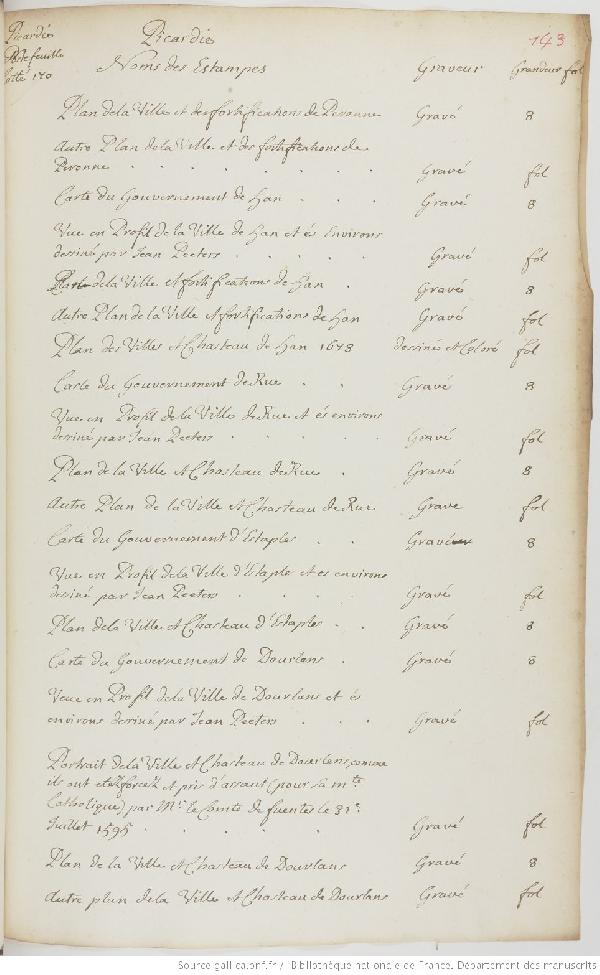 Picardie
Portefeuille
cotté 170
Picardie
143
Noms des Estampes Graveur Grandeur fol
Plan de la Ville et des fortifications de Peronne Gravé 8
Autre Plan de la Ville et des fortifications de
Peronne . . . . . . . Gravé fol
Carte du Gouvernement de Han . . . Gravé 8
Vue en Profil de la Ville de Han et és Environs
dessiné par Jean Peeters . . . . . Gravé fol
Plan de la Ville et fortifications de Han . Gravé 8
Autre Plan de la Ville et fortifications de Han Gravé fol
Plan des Villes et Chasteau de Han 1648 dessiné et Coloré fol
Carte du Gouvernement de Rue . . Gravé 8
Vue en Profil de la Ville de Rue et és environs
dessiné par Jean Peeters . . . . Gravé fol
Plan de la Ville et Chasteau de Rue . Gravé 8
Autre Plan de la Ville et Chasteau de Rue Gravé fol
Carte du Gouvernement d'Estaples . . Gravé 8
Vue en Profil de la Ville d'Estaples et es environs
dessiné par Jean Peeters . . . . Gravé fol
Plan de la Ville et Chasteau d'Estaples . . Gravé 8
Carte du Gouvernement de Dourlans . Gravé 8
Veue en Profil de la Ville de Dourlans et és
environs dessiné par Jean Peeters . . . Gravé fol
Portrait de la Ville et Chasteau de Dourlans, comme
ils ont etez forcez et pris d'assaut (pour sa mté
Catholique) par Mr. le Comte de fuentes le 31e
Juillet 1595 . . . . Gravé fol
Plan de la Ville et Chasteau de Dourlans Gravé 8
Autre plan de la Ville et Chasteau de Dourlans Gravé fol
Source gallica.bnf.fr / Bibliothèque nationale de France. Département des manuscrits